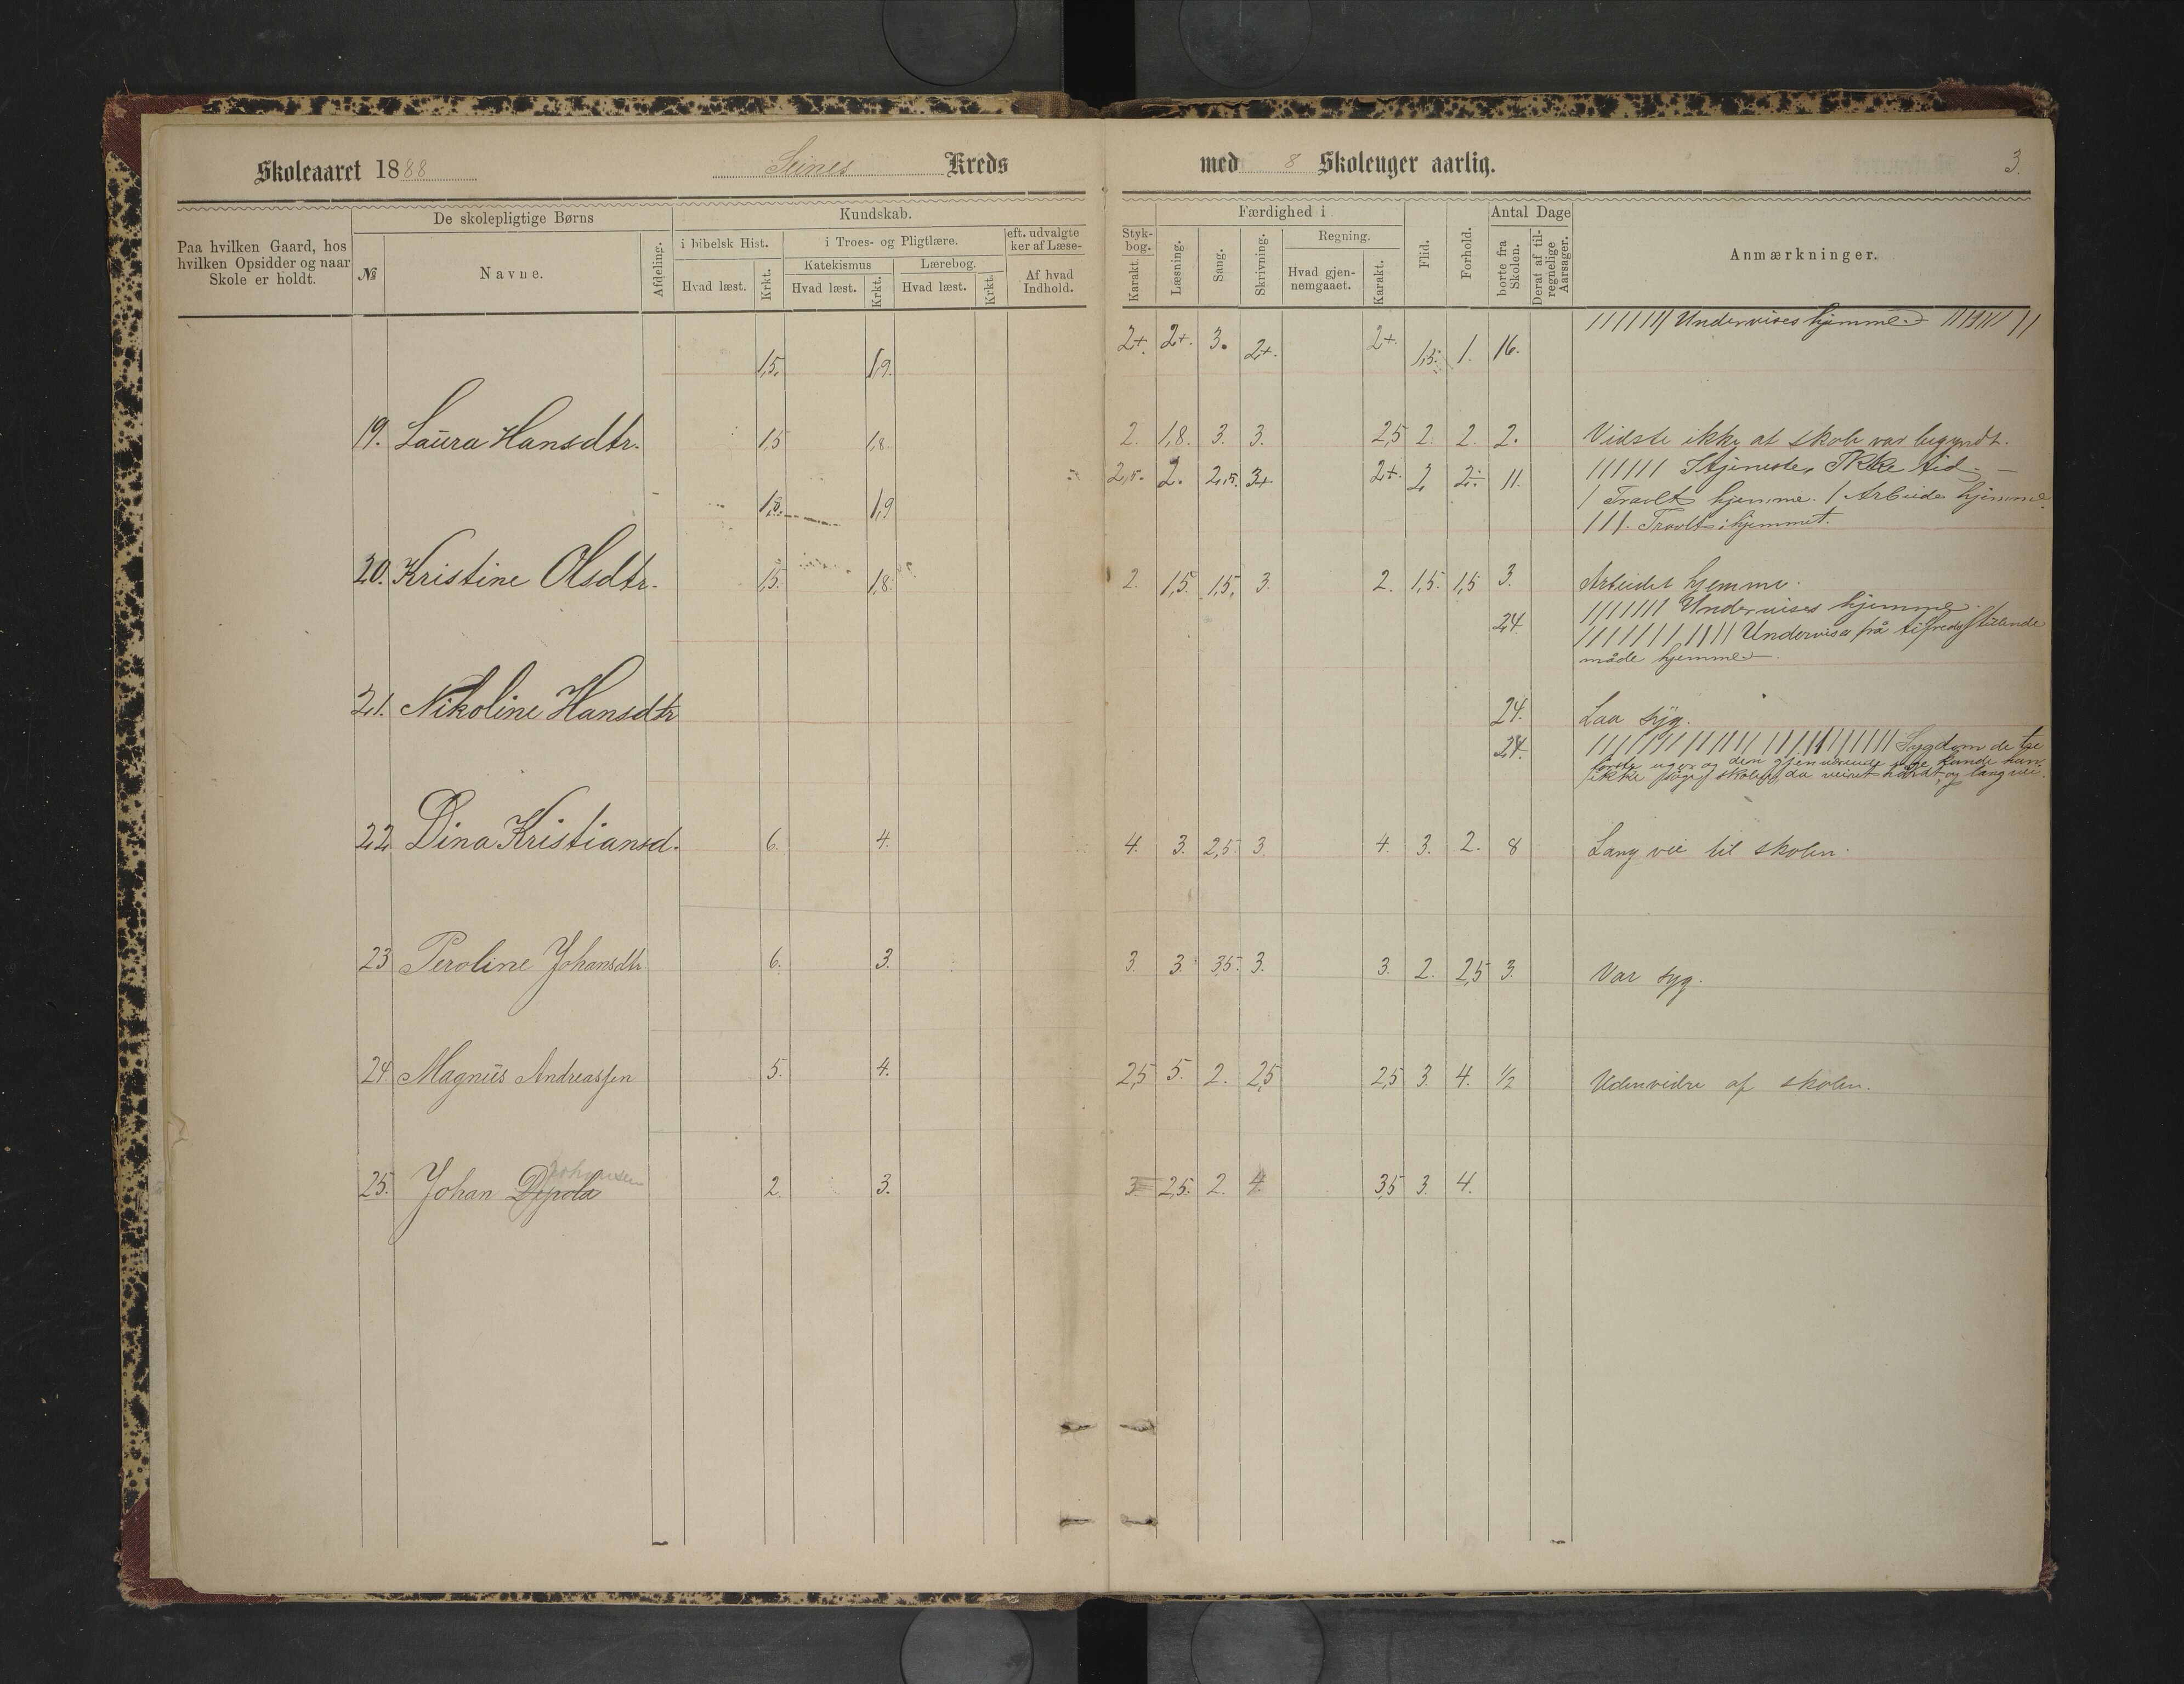 Skoleaaret 1888 Seines Kreds med 8 Skoleuger aarlig. 3.
Paa hvilken Gaard, hos hvilken Opsidder og naar Skole er holdt.
De skolepligtige Børns
№ Navne. Afdeling.
Kundskab.
i bibelsk Hist. i Troes- og Pligtlære. eft. udvalgte
ker af Læse-
Katekismus Lærebog.
Hvad læst. Krkt. Hvad læst. Krkt. Hvad læst. Krkt. Af hvad Indhold.
Styk-
bog.
Karakt.
Færdighed i
Læsning. Sang. Skrivning. Regning.
Hvad gjen-
nemgaaet. Karakt.
Flid. Forhold.
Antal Dage
borte fra Skolen. Deraf af til-
regnelige Aarsager.
Anmærkninger.
1,5. 1,9. 2+. 2+. 3. 2+. 2+. 1,5. 1. 16. /////// Undervises hjemme. ///////// 
19. Laura Hansdtr. 1,5 1,8. 2. 1,8. 3. 3. 2,5 2. 2. 2. Vidste ikke at skole var begyndt.
1,8. 1,9 2,5. 2. 2,5. 3+ 2+. 2 2÷. 11. ////// I tjeneste, Ikke tid. —
/ Travlt hjemme. / Arbeide hjemme.
///. Travlt i hjemmet.
20. Kristine Olsdtr. 1,5. 1,8. 2. 1,5. 1,5. 3. 2. 1,5. 1,5 3. Arbeidet hjemme.
24. //////// Undervises hjemme.
//////////// Undervises på tilfredsstillende
måde hjemme.
21. Nikoline Hansdtr 24. Laa syg.
24. ////////////////////// Sygdom de tre
første uger og den gjenværende uge kunde hun
ikke søge skolen, da veiret hårdt og lang vei.
22 Dina Kristiansd. 6. 4. 4. 3. 2,5. 3. 4. 3. 2. 8 Lang vei til skolen.
23 Peroline Johansdtr 6. 3. 3. 3. 3,5. 3. 3. 2. 2,5 3. Var syg.
24. Magnus Andreassen 5. 4. 2,5 5. 2. 2,5 2,5 3. 4. ½ Udenvidre af skolen.
Johansen
25. Johan 2. 3. 3 2,5. 2. 4. 3,5 3. 4.